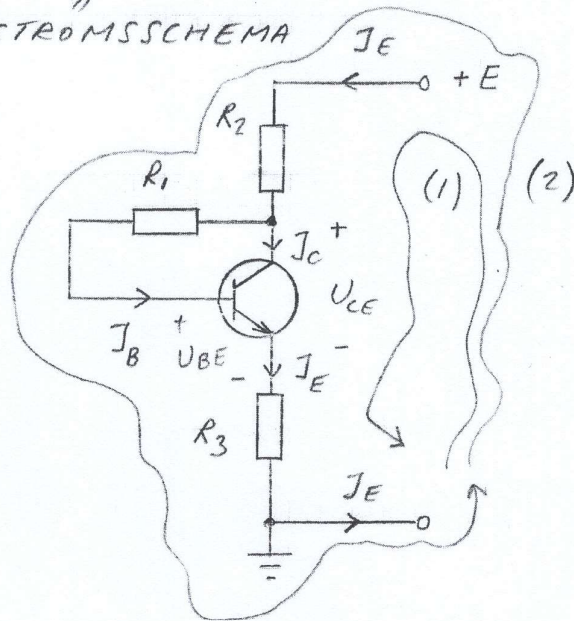 STRÖMSSCHEMA
I_E
+ E
R_2
R_1
(1)
(2)
I_C
+
U_CE
I_B
+
U_BE
-
I_E
-
R_3
I_E